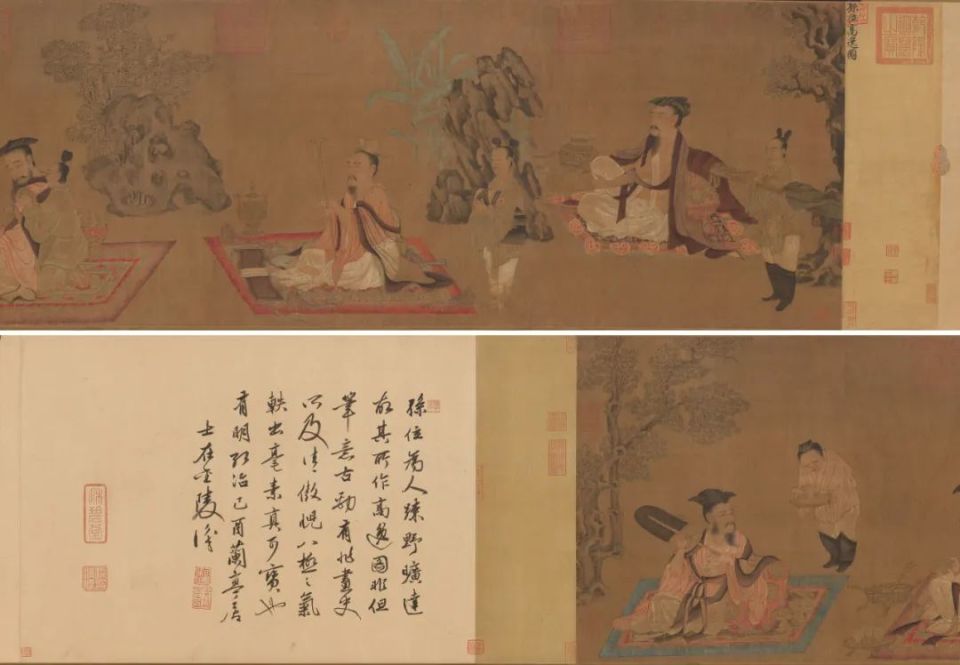 孫位高逸圖
孫位為人踈野曠達
故其所作高逸圖非但
筆意古勁有非畫史
所及清傲睨八極之氣
軼出毫素真可寶也
有明弘治己酉蘭亭居
士在金陵識